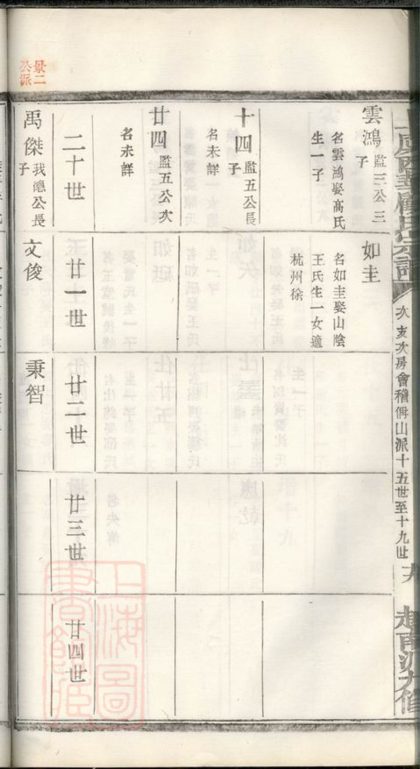 雲鴻 監三公三子
名雲鴻娶高氏
生一子
十四 監五公長子
名未詳
廿四 監五公次子
名未詳
如圭
名如圭娶山陰
王氏生一女適
杭州徐
二十世
廿一世
廿二世
廿三世
廿四世
景二公派
禹傑 我聰公長子
文俊
秉智
次亥次房會稽偁山派十五世至十九世
上海圖書館藏